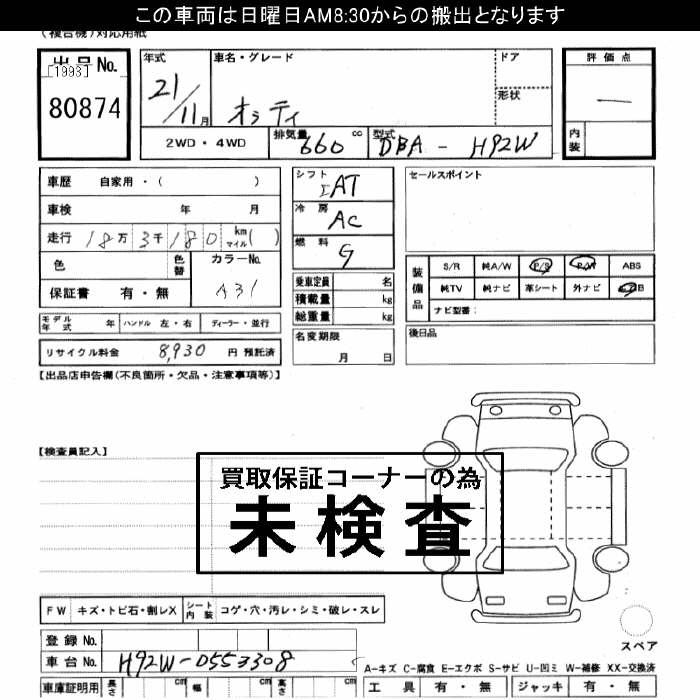 この車両は日曜日AM8:30からの搬出となります
(複合機)対応用紙
出品No.
[1993]
80874
年式
21/11月
車名・グレード
オッティ
ドア
形状
評価点
―
内装
2WD・4WD
排気量 660 cc
型式 DBA - H92W
車歴 自家用・( )
車検 年 月
走行 18万3千180 km マイル( )
色
色替
カラーNo.
A31
保証書 有・無
モデル年式 年 ハンドル 左・右 ディーラー・並行
リサイクル料金 8,930 円 預託済
シフト
AT
冷房
AC
燃料
G
乗車定員 名
積載量 kg
総重量 kg
名変期限
月 日
セールスポイント
装備品
S/R 純A/W P/S P/W ABS
純TV 純ナビ 革シート 外ナビ B
ナビ型番:
後日品
【出品店申告欄(不良箇所・欠品・注意事項等)】
【検査員記入】
買取保証コーナーの為
未検査
FW キズ・トビ石・割レX
シート内装 コゲ・穴・汚レ・シミ・破レ・スレ
スペア
登録No.
車台No. H92W-0553308
A-キズ C-腐食 E-エクボ S-サビ U-凹ミ W-補修 XX-交換済
車庫証明用 長さ cm 幅 cm 高さ cm
工具 有・無 ジャッキ 有・無